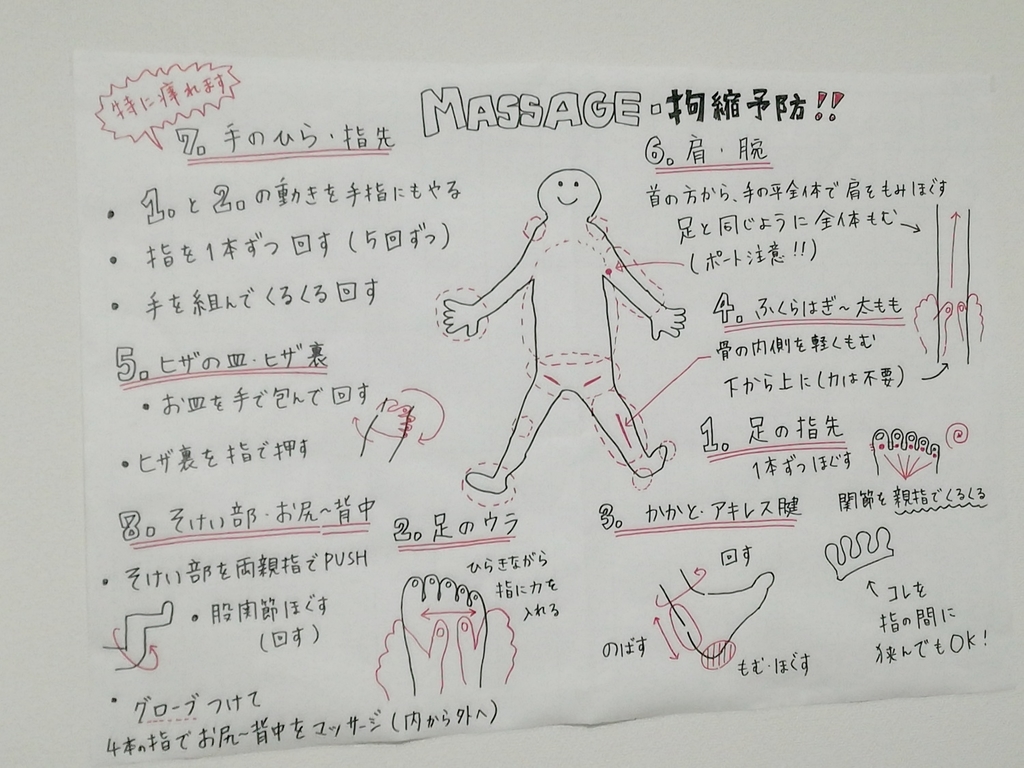 MASSAGE・拘縮予防!!
特に痺れます
7. 手のひら・指先
・1.と2.の動きを手指にもやる
・指を1本ずつ回す(5回ずつ)
・手を組んでくるくる回す
5. ヒザの皿・ヒザ裏
・お皿を手で包んで回す
・ヒザ裏を指で押す
8. そけい部・お尻〜背中
・そけい部を両親指でPUSH
・股関節ほぐす
(回す)
・グローブつけて
4本の指でお尻〜背中をマッサージ(内から外へ)
6. 肩・腕
首の方から、手の平全体で肩をもみほぐす
足と同じように全体もむ
(ポート注意!!)
4. ふくらはぎ〜太もも
骨の内側を軽くもむ
下から上に(力は不要)
1. 足の指先
1本ずつほぐす
関節を親指でくるくる
コレを
指の間に
挟んでもOK!
2. 足のウラ
ひらきながら
指に力を
入れる
3. かかと・アキレス腱
回す
のばす
もむ・ほぐす